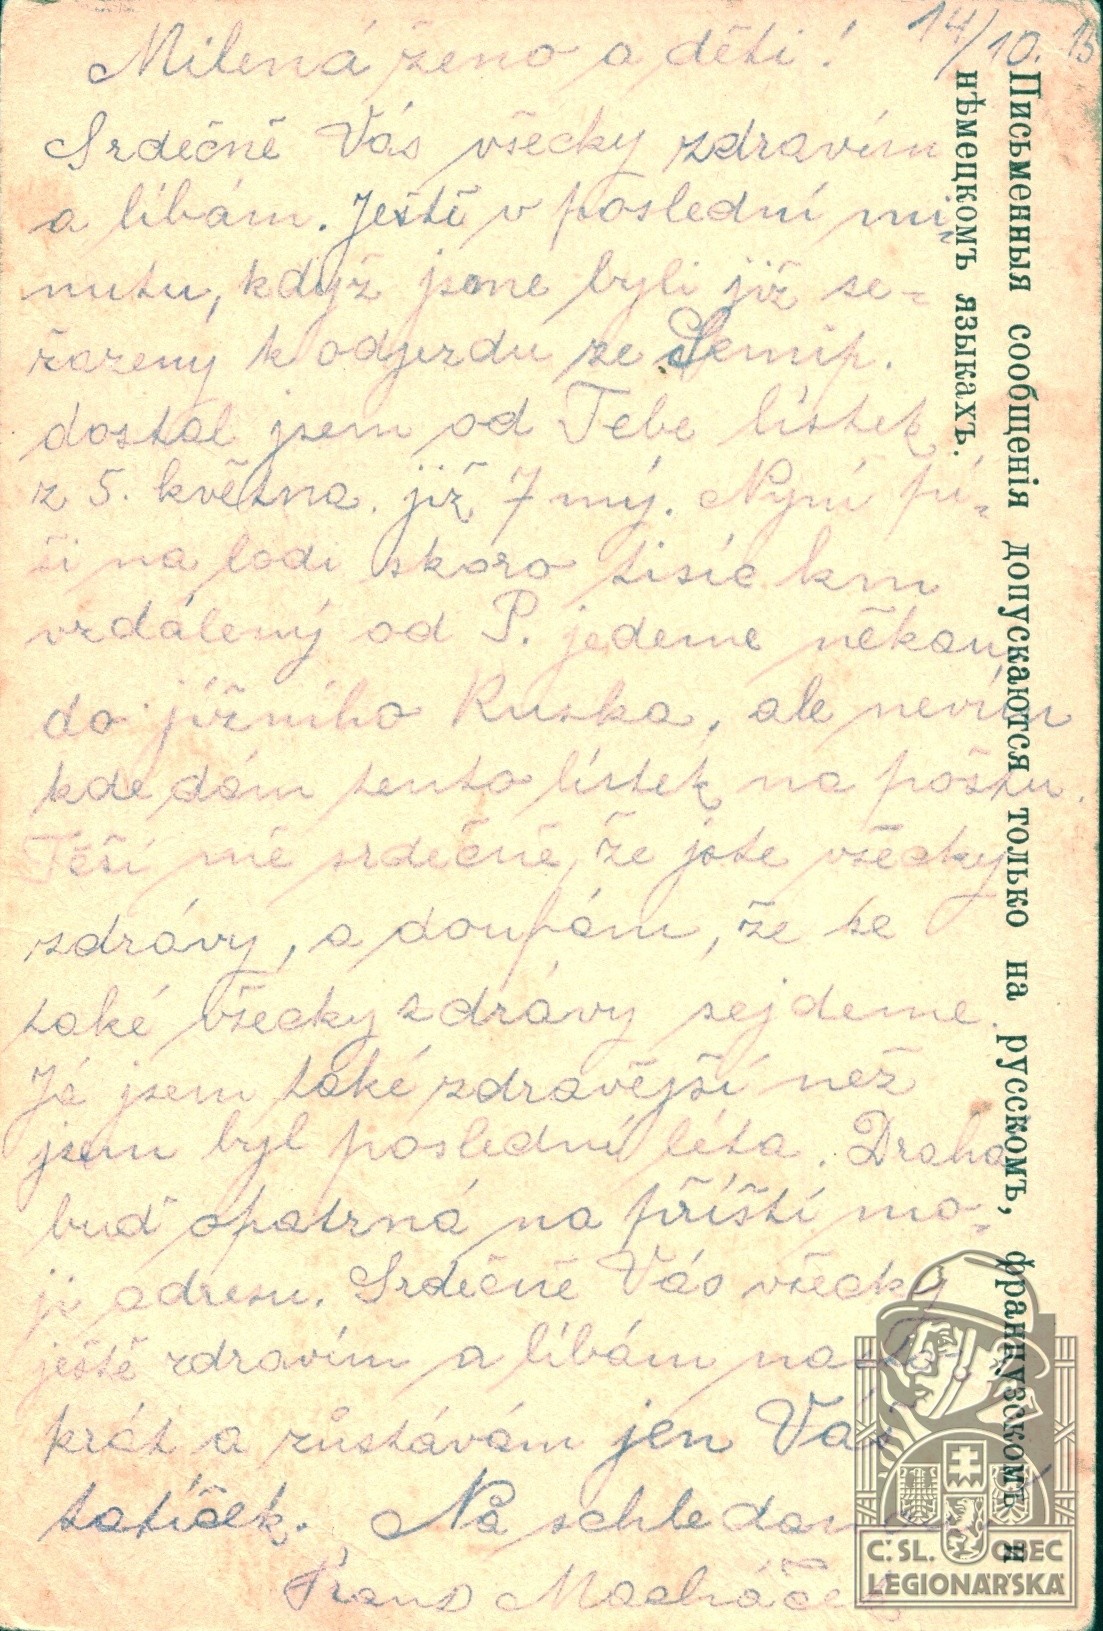 14/10. 15
Milená ženo a děti!
Srdečně Vás všecky zdravím
a líbám. Ještě v poslední mi-
nutu, když jsme byli již se-
řazeny k odjezdu ze Semip.
dostal jsem od Tebe lístek
z 5. května. již 7 mý. Nyní pí-
ši na lodi skoro tisíc km
vzdálený od P. jedeme někam
do jížního Ruska, ale nevím
kde dám tento lístek na poštu.
Těší mě srdečně, že jste všecky
zdrávy, a doufám, že se
také všecky zdrávy sejdeme.
Já jsem také zdravější než
jsem byl poslední léta. Drahá
buď opatrná na příští mo-
ji adresu. Srdečně Vás všecky
ještě zdravím a líbám
krát a zůstávám jen Váš
tatíček. Na schledanou
Franz Macháček
Письменныя сообщенія допускаются только на русскомъ, французскомъ и
нѣмецкомъ языкахъ.
Č. SL. OBEC
LEGIONÁŘSKÁ